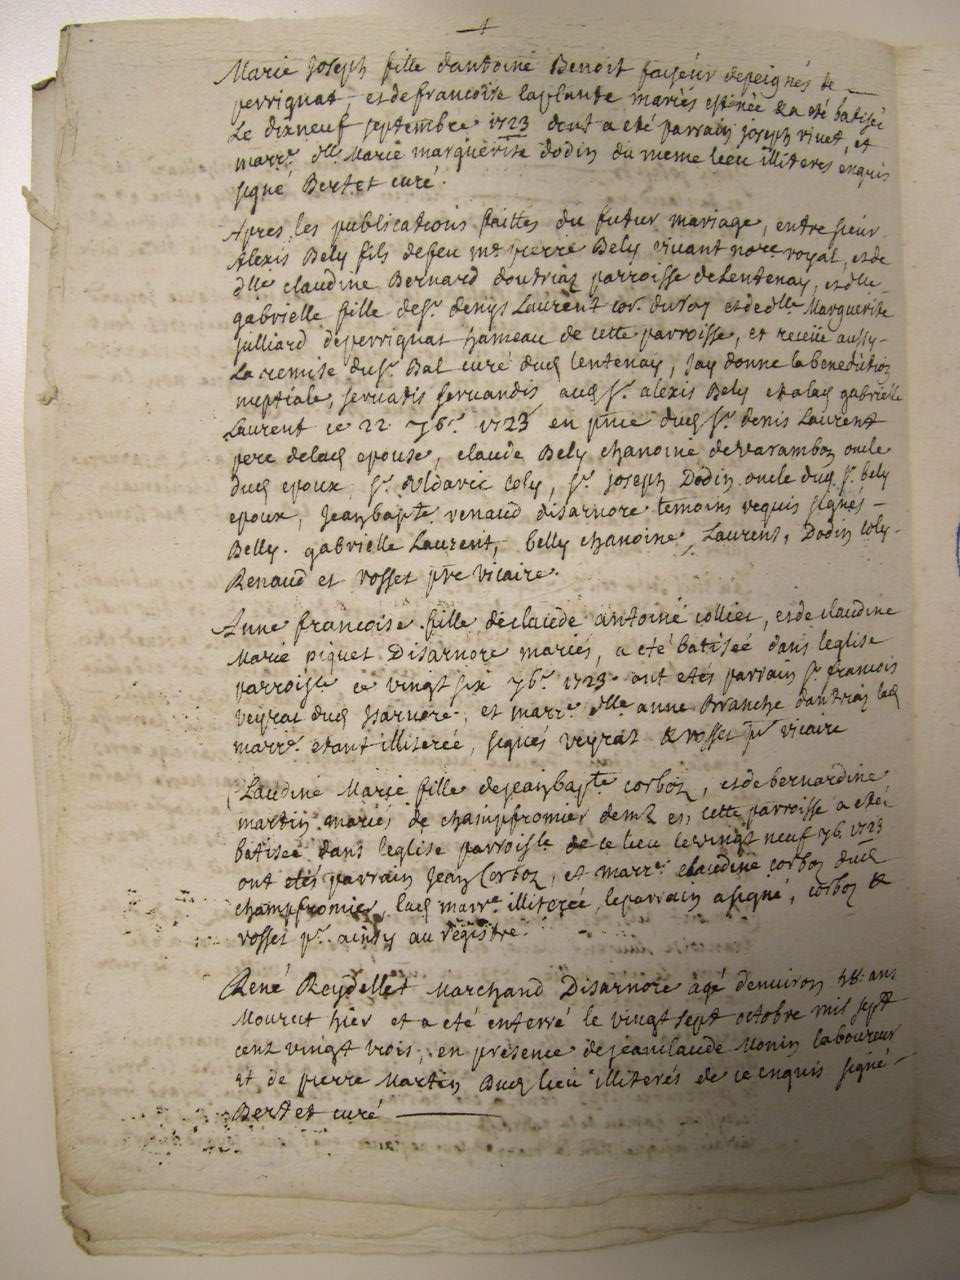 Marie Joseph fille dantoine Benoit faiseur depeignés de
perrignat, et defrancoise laplante mariés est née & a eté batiseé
Le dixneuf septembre 1723 dont a eté parrain joseph vinet, et
marr.e dlle Marie marguerite dodin du meme lieu illiteres enquis
signé Bertet curé.
Apres les publications faittes du futur mariage, entre sieur
Alexis Bely fils defeu me pierre Bely vivant nore royal, et de
dlle claudine Bernard doutriaz parroisse deLentenay, et dlle
gabrielle fille desr denys Laurent du roy et de dlle Marguerite
julliard deperrignat hameau de cette parroisse, et receüe aussy
La remise dusr Bal curé dud lentenay, jay donné la benediction
nuptiale, servatis servandis aud sr alexis Bely et alad gabrielle
Laurent ce 22 7br. 1723 en pnce dud sr denis Laurent
pere delad epouse, claude Bely chanoine devarambon oncle
dud epoux, sr Coly, sr joseph Dodin oncle dud sr bely
epoux, jeanbapte renaud disarnore temoins requis signés
Belly. gabrielle Laurent, belly chanoine, Laurent, Dodin Coly
Renaud et rosset ptre vicaire.
Anne francoise fille declaude antoine collier, et de claudine
Marie piquet Disarnore mariés, a eté batiseé dans leglise
parroissle ce vingt six 7br. 1723 ont etés parrain sr francois
veyrat dud Isarnore, et marr.e dlle anne Branche dautriaz lad
marr.e etant illitereé, signés veyrat & rosset ptr vicaire
Claudine Marie fille dejeanbapte corboz, et de bernardine
martin mariés de champfromier demts en cette parroisse a eté
batiseé dans leglise parroissle de ce lieu le vingt neuf 7b. 1723
ont etés parrain jean Corboz, et marr.e claudine corboz dud
champfromier, lad marr.e illitereé, leparrain a signé, corboz &
rosset pr. ainsy au régistre.
René Reydellet Marchand Disarnore agé denviron 78 ans
Mourut hier et a eté enterré le vingt sept octobre mil sept
cent vingt trois, en presence dejeanclaude Monin laboureur
et de pierre Martin Dud lieu illiterés de ce enquis signé
Bertet curé